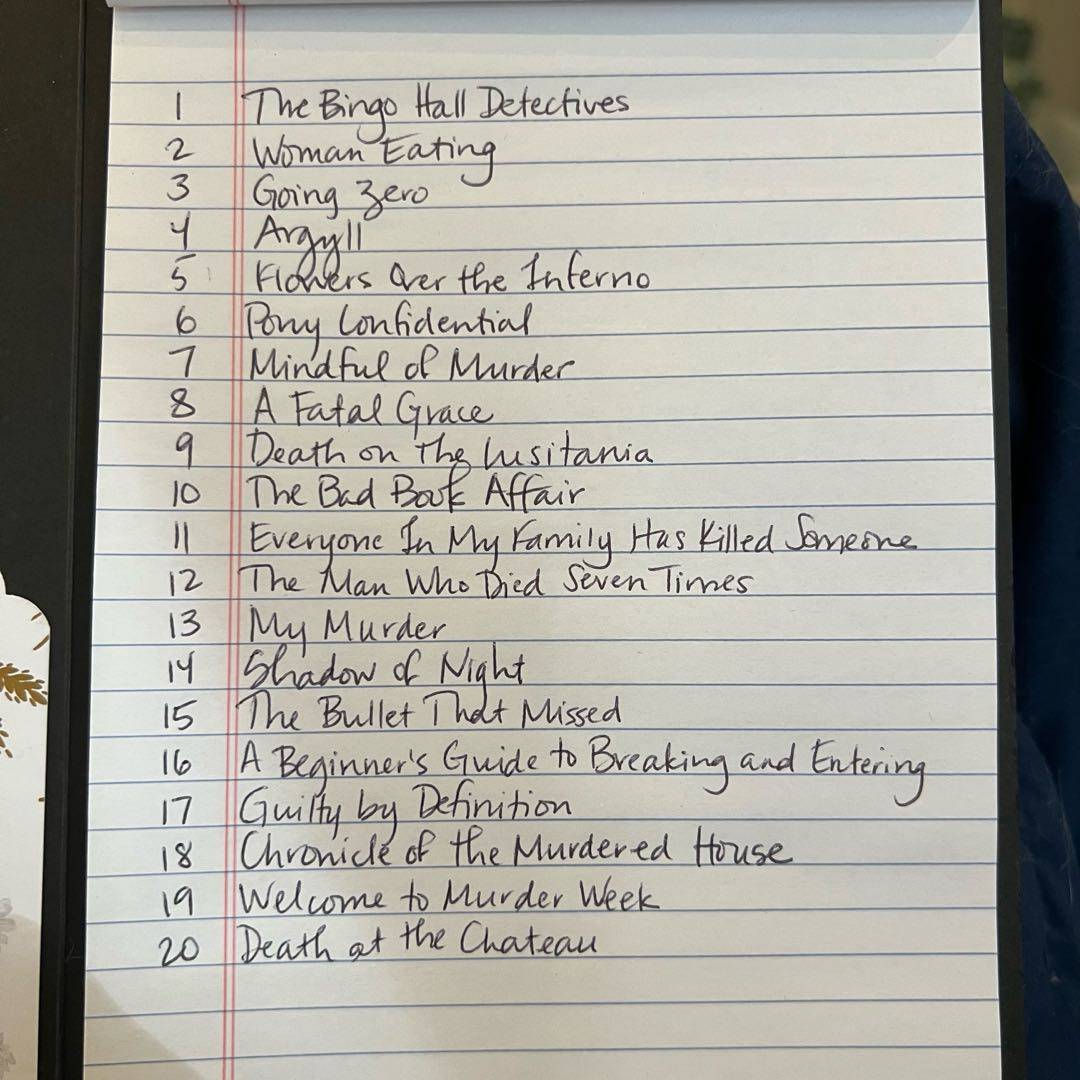 1 The Bingo Hall Detectives
2 Woman Eating
3 Going Zero
4 Argyll
5 Flowers Over the Inferno
6 Pony Confidential
7 Mindful of Murder
8 A Fatal Grace
9 Death on the Lusitania
10 The Bad Book Affair
11 Everyone In My Family Has Killed Someone
12 The Man Who Died Seven Times
13 My Murder
14 Shadow of Night
15 The Bullet That Missed
16 A Beginner's Guide to Breaking and Entering
17 Guilty by Definition
18 Chronicle of the Murdered House
19 Welcome to Murder Week
20 Death at the Chateau